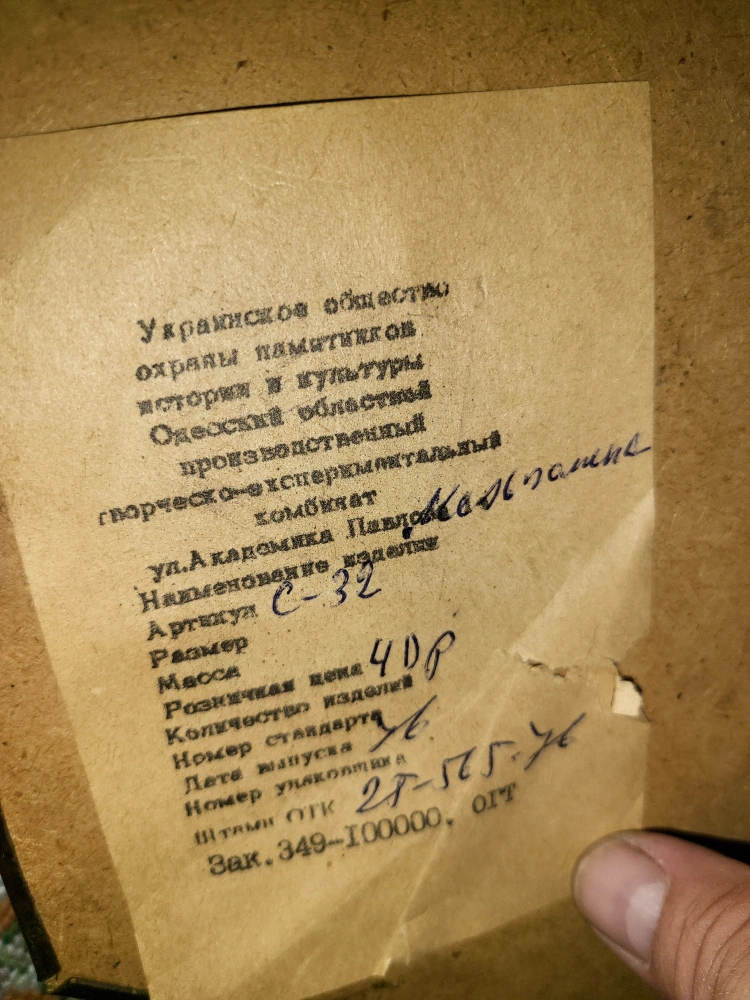 Украинское общество
охраны памятников
истории и культуры
Одесский областной
производственный
творческо-экспериментальный
комбинат
ул.Академика Павлова
Наименование изделия
Артикул С-32
Размер
Масса
Розничная цена 40р
Количество изделий
Номер стандарта
Дата выпуска 76
Номер упаковщика
Штамп ОТК 2Т-565-76
Зак.349-I00000. ОГТ